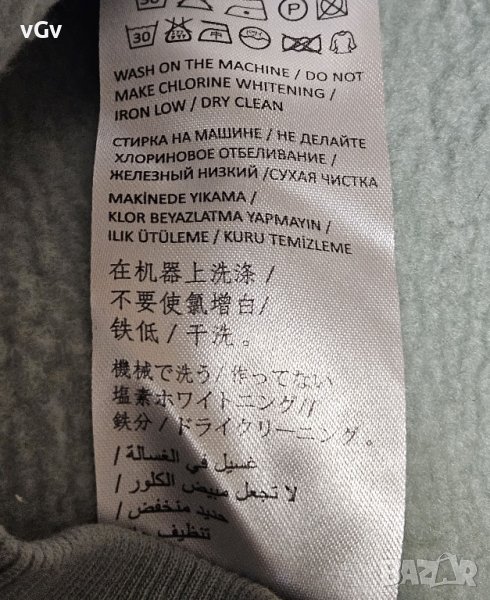 vGv
30 P
30
WASH ON THE MACHINE / DO NOT
MAKE CHLORINE WHITENING /
IRON LOW / DRY CLEAN
СТИРКА НА МАШИНЕ / НЕ ДЕЛАЙТЕ
ХЛОРИНОВОЕ ОТБЕЛИВАНИЕ /
ЖЕЛЕЗНЫЙ НИЗКИЙ /СУХАЯ ЧИСТКА
MAKİNEDE YIKAMA /
KLOR BEYAZLATMA YAPMAYIN /
ILIK ÜTÜLEME / KURU TEMİZLEME
在机器上洗涤 /
不要使氯增白/
铁低 / 干洗 。
機械で洗う / 作ってない
塩素ホワイトニング//
鉄分 / ドライクリーニング 。
غسيل في الغسالة /
لا تجعل مبيض الكلور /
حديد منخفض /
تنظيف
BAZAR